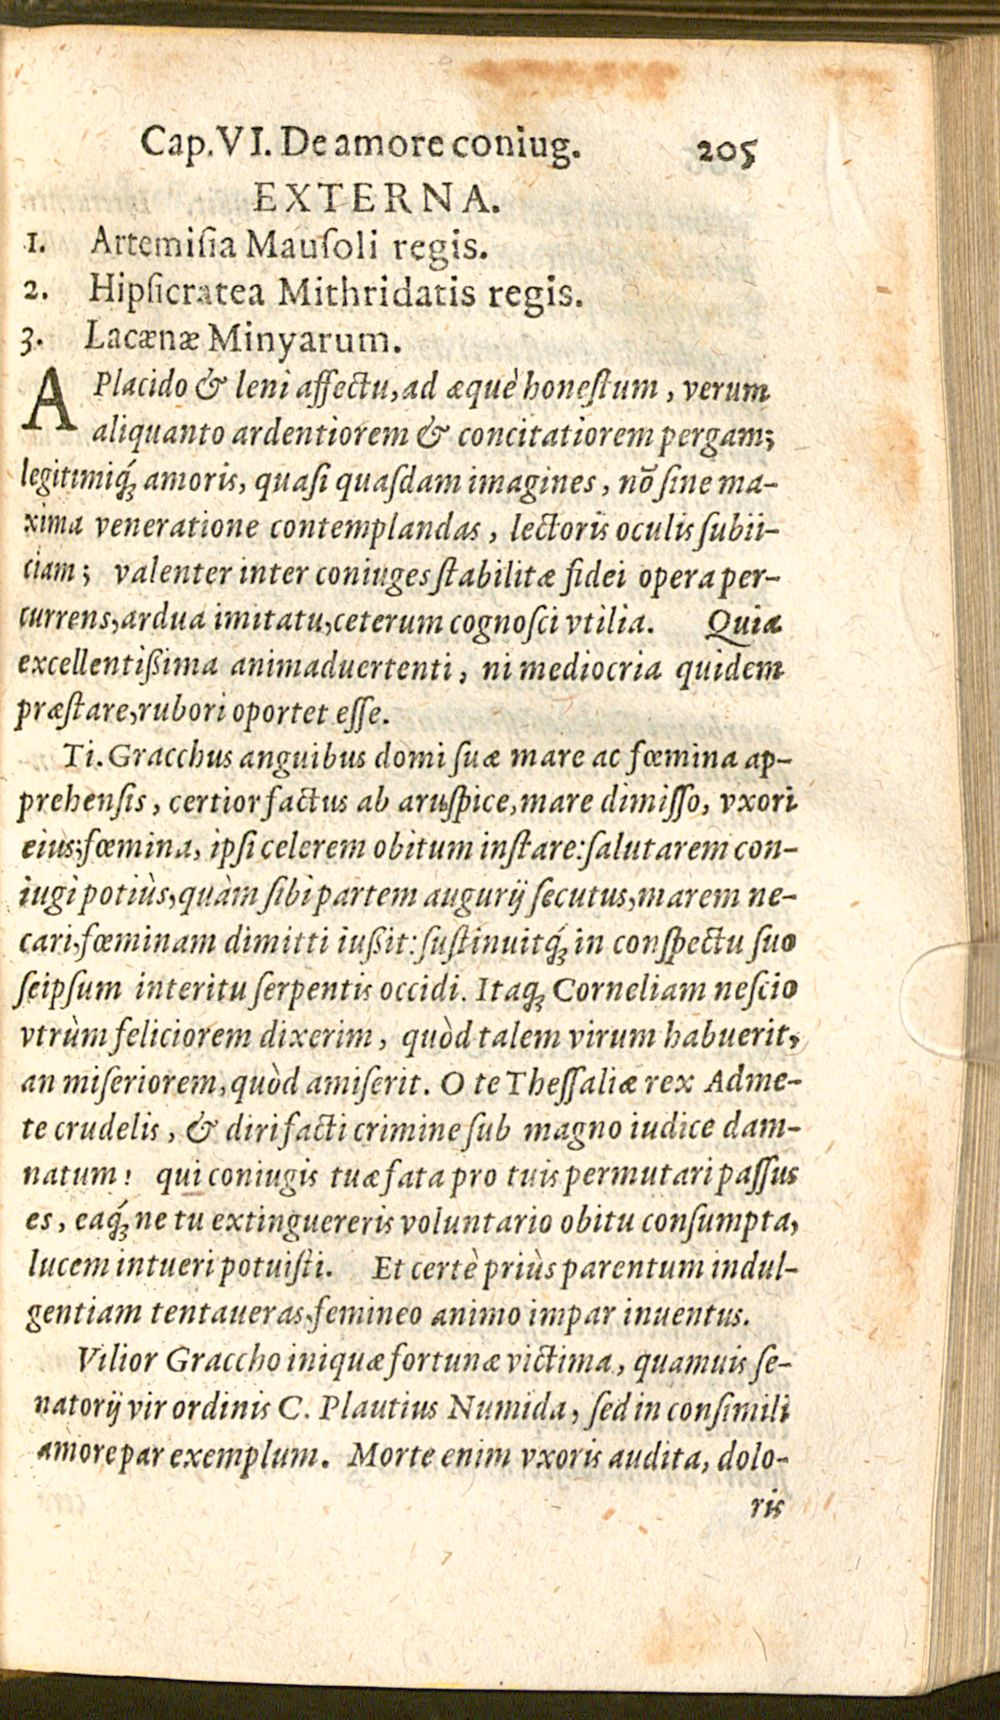 Cap. VI. De amore coniug. 205
EXTERNA.
1. Artemiſia Mauſoli regis.
2. Hipſicratea Mithridatis regis.
3. Lacænæ Minyarum.
A Placido & leni affectu, ad æquè honeſtum, verum
aliquanto ardentiorem & concitatiorem pergam;
legitimiq́ꝫ amoris, quaſi quaſdam imagines, nō ſine ma-
xima veneratione contemplandas, lectoris oculis ſubii-
ciam; valenter inter coniuges ſtabilitæ fidei opera per-
currens, ardua imitatu, ceterum cognoſci vtilia. Quia
excellentißima animaduertenti, ni mediocria quidem
præſtare, rubori oportet eſſe.
Ti. Gracchus anguibus domi ſuæ mare ac fœmina ap-
prehenſis, certior factus ab aruſpice, mare dimiſſo, vxori
eius; fœmina, ipſi celerem obitum inſtare: ſalutarem con-
iugi potiùs, quàm ſibi partem augurij ſecutus, marem ne-
cari, fœminam dimitti iußit: ſuſtinuitq́ꝫ in conſpectu ſuo
ſeipſum interitu ſerpentis occidi. Itaqꝫ Corneliam neſcio
vtrùm feliciorem dixerim, quòd talem virum habuerit,
an miſeriorem, quòd amiſerit. O te Theſſaliæ rex Adme-
te crudelis, & diri facti crimine ſub magno iudice dam-
natum! qui coniugis tuæ fata pro tuis permutari paſſus
es, eaq́ꝫ ne tu extinguereris voluntario obitu conſumpta,
lucem intueri potuiſti. Et certè priùs parentum indul-
gentiam tentaueras, femineo animo impar inuentus.
Vilior Graccho iniquæ fortunæ victima, quamuis ſe-
natorij vir ordinis C. Plautius Numida, ſed in conſimili
amore par exemplum. Morte enim vxoris audita, dolo-
ris